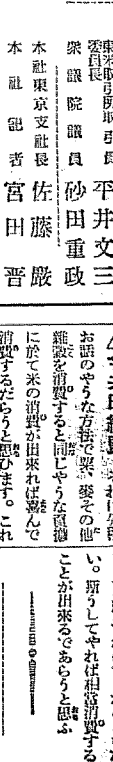 東米取引所取引員
委員長 平井文三
衆議院議員 砂田重政
本社東京支社長 佐藤 厳
本社記者 宮田 晋
お話のやうな方法で粟、麥その他
雑穀を消費すると同じやうな意味
に於て米の消費が出來れば喜んで
消費するだらうと思ひます。これ
い。斯うしてやれば相當消費する
ことが出來るであらうと思ふ